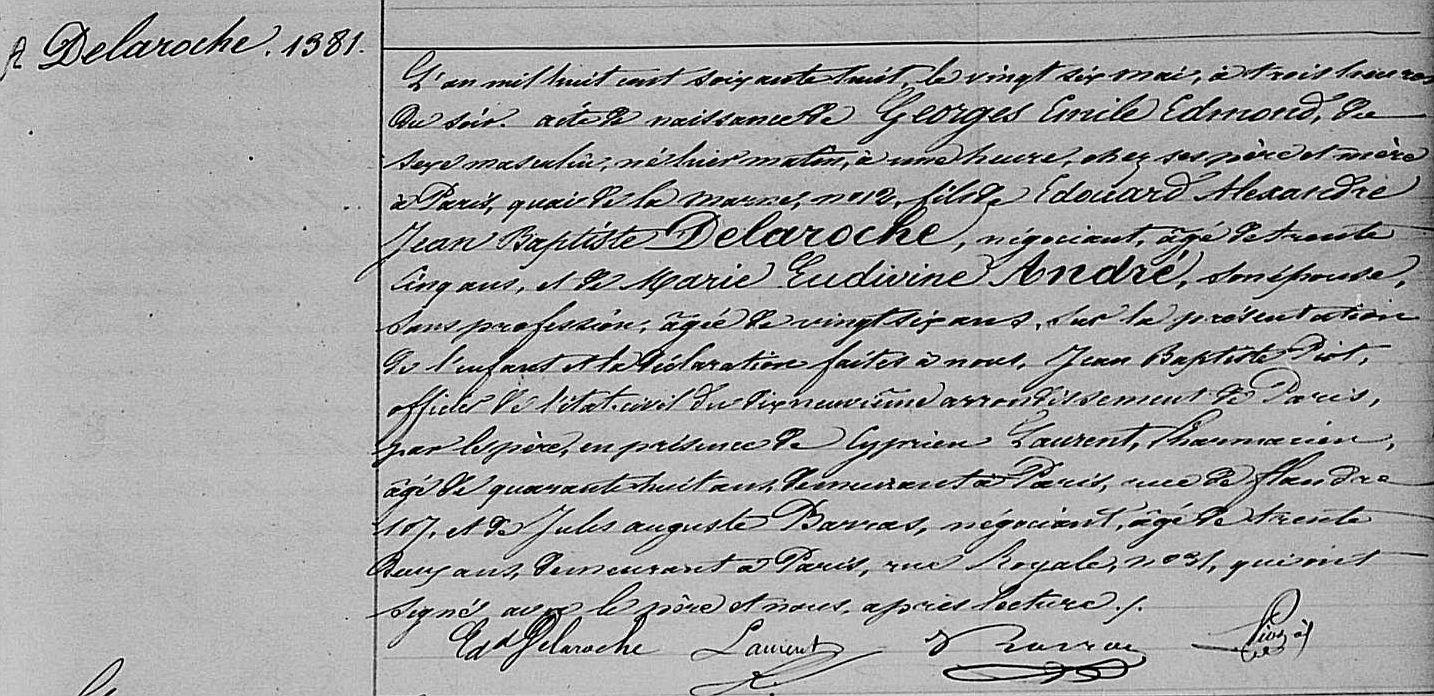 Delaroche. 1381.
L'an mil huit cent soixante huit, le vingt six mai, à trois heures
du soir. acte de naissance de Georges Emile Edmond, de
sexe masculin, né hier matin, à une heure, chez ses père et mère
à Paris, quai de la Marne, no 12, fils de Edouard Alexandre
Jean Baptiste Delaroche, négociant, âgé de trente
cinq ans, et de Marie Ludivine André, son épouse,
sans profession, âgée de vingt six ans, sur la présentation
de l'enfant et la déclaration faites à nous, Jean Baptiste Piot,
officier de l'état-civil du dixneuvième arrondissement de Paris,
par le père, en présence de Cyprien Laurent, Pharmacien,
âgé de quarante huit ans, demeurant à Paris, rue de flandre
107, et de Jules auguste Barras, négociant, âgé de trente
deux ans, demeurant à Paris, rue Royale, no 31, qui ont
signé avec le père et nous, après lecture ./.
Ed Delaroche Laurent J Barras